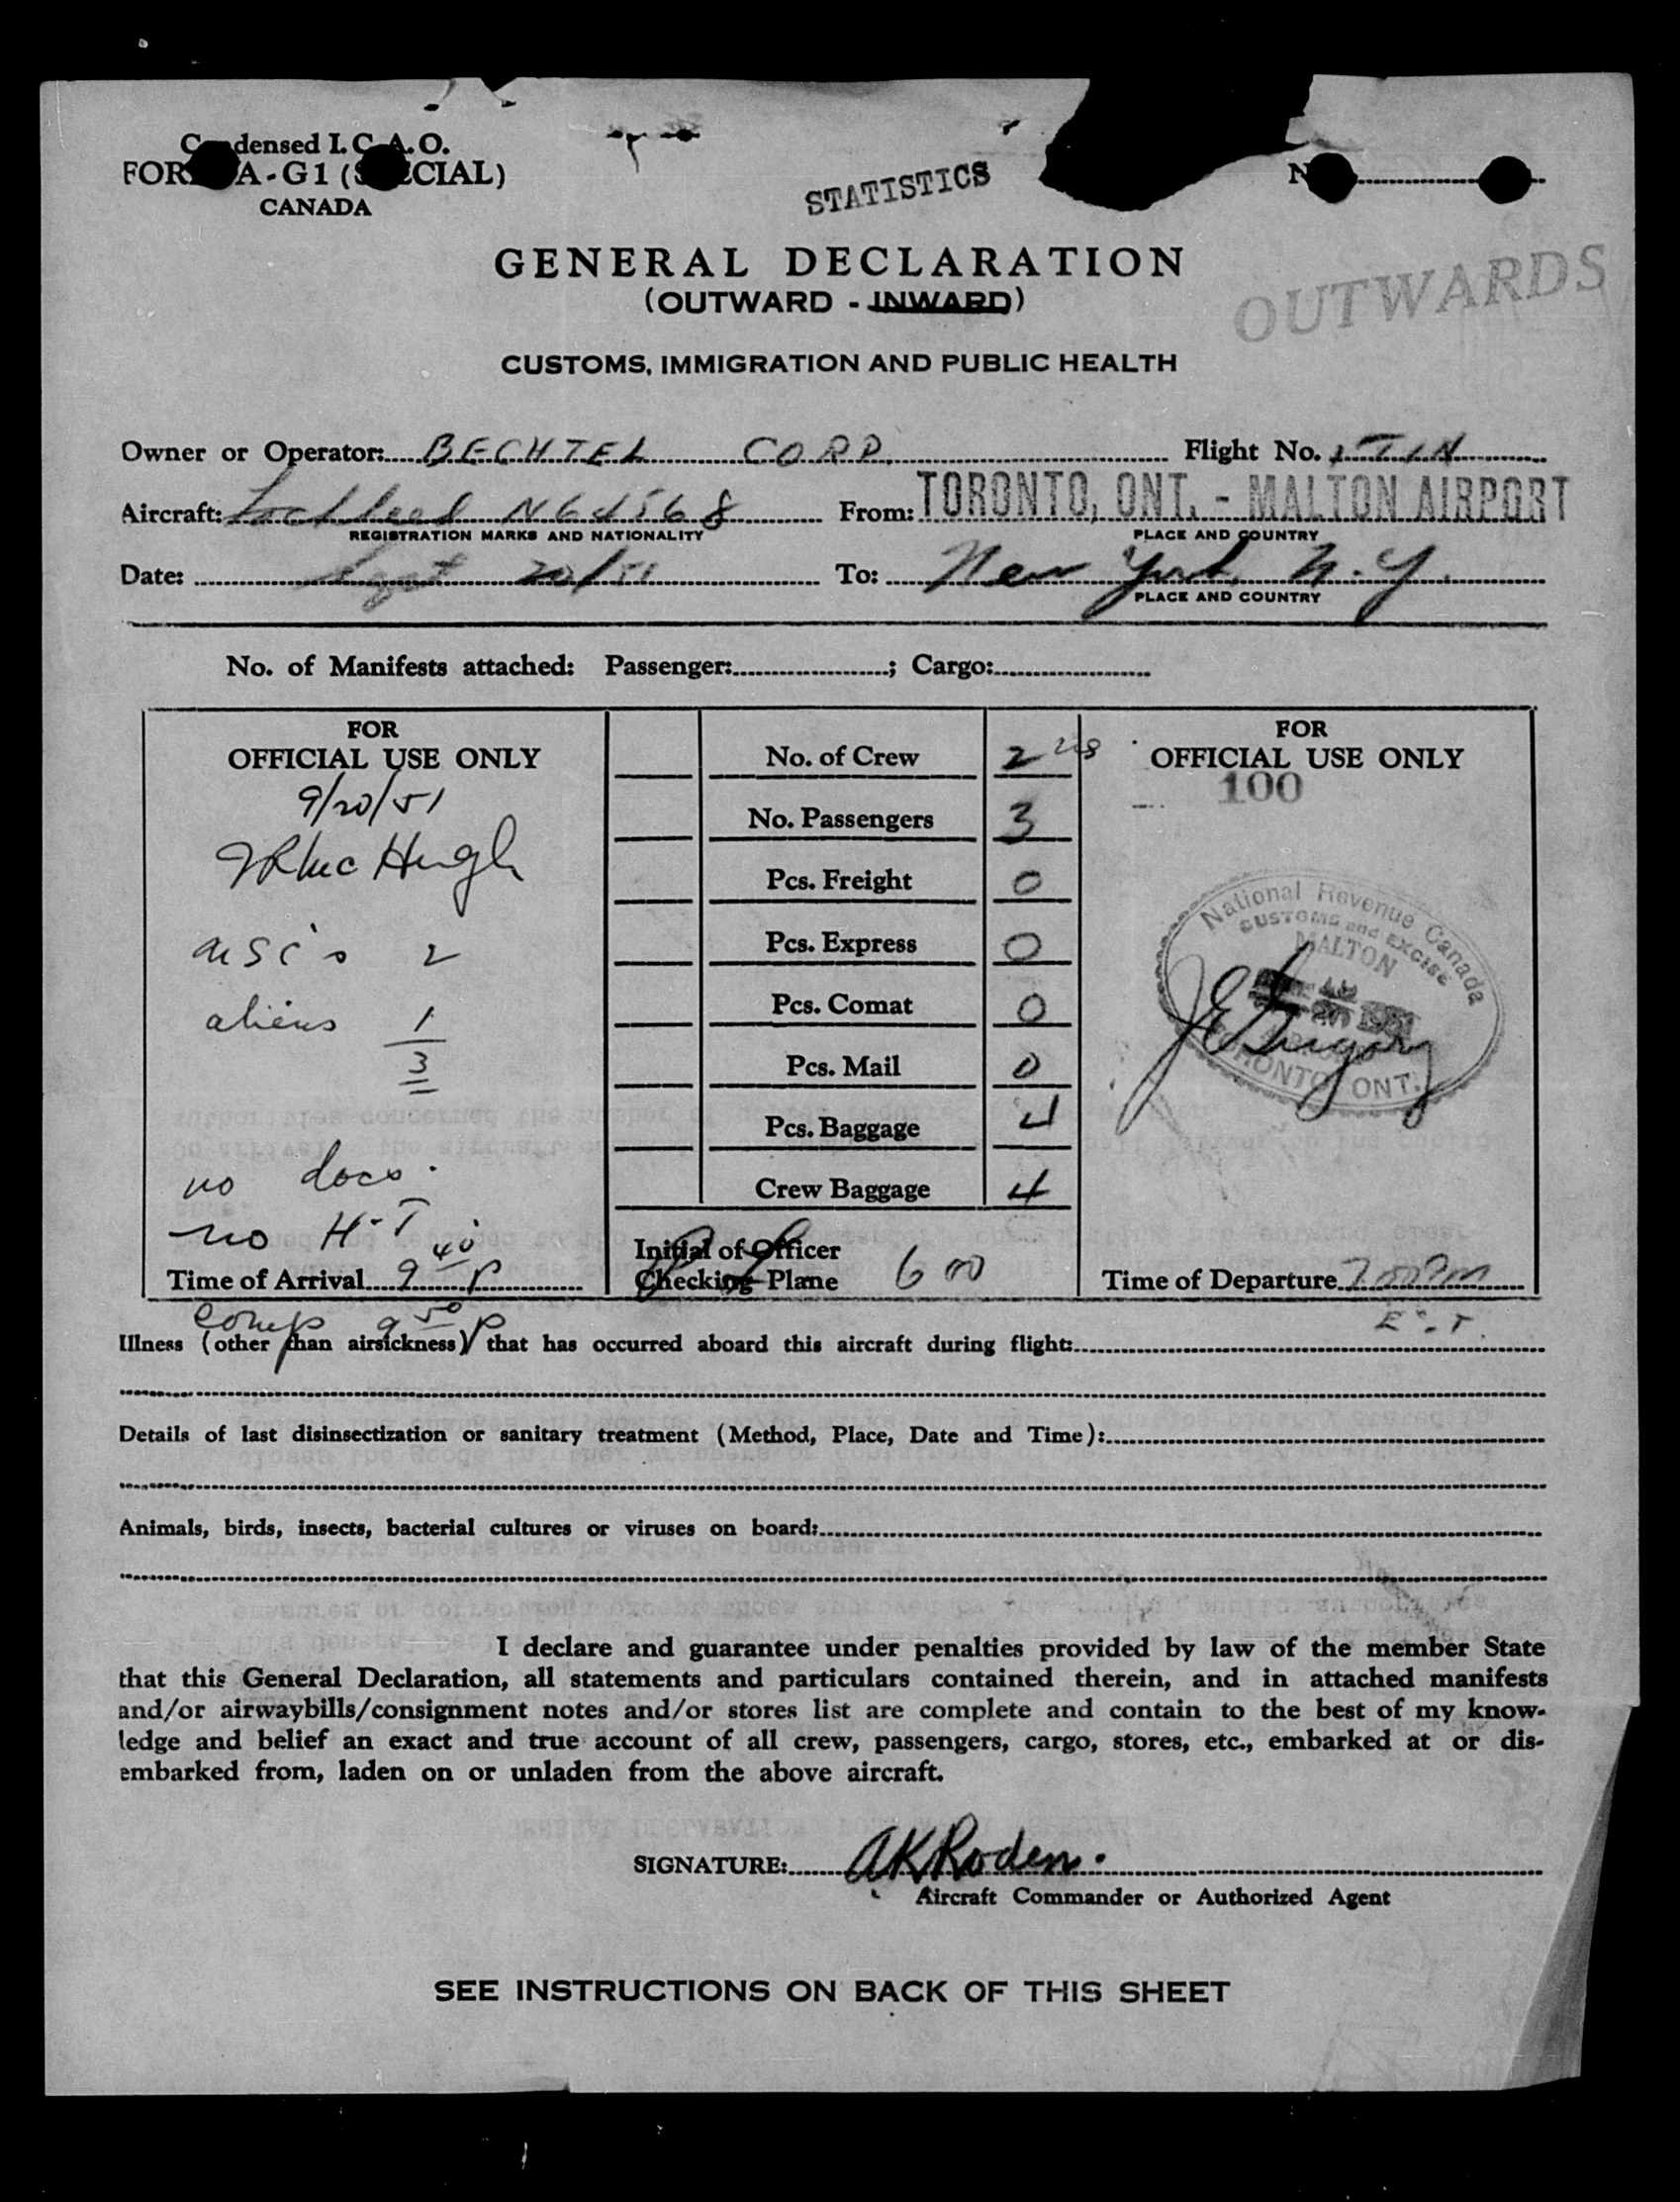 Condensed I.C.A.O.
FORM A-G1 (SPECIAL)
CANADA
STATISTICS
GENERAL DECLARATION
(OUTWARD - INWARD)
OUTWARDS
CUSTOMS, IMMIGRATION AND PUBLIC HEALTH
Owner or Operator: BECHTEL CORP. Flight No. ITIN
Aircraft: Lockheed N64568 From: TORONTO, ONT. - MALTON AIRPORT
REGISTRATION MARKS AND NATIONALITY PLACE AND COUNTRY
Date: Sept 20/51 To: New York, N.Y.
PLACE AND COUNTRY
No. of Manifests attached: Passenger: ; Cargo:
FOR
OFFICIAL USE ONLY
9/20/51
McHugh
USC's 2
aliens 1
3
no docs.
no H-T
Time of Arrival 9 40 P
Comp 9 50 P
No. of Crew 2 US
No. Passengers 3
Pcs. Freight 0
Pcs. Express 0
Pcs. Comat 0
Pcs. Mail 0
Pcs. Baggage 4
Crew Baggage 4
Initial of Officer
Checking Plane 6 00
FOR
OFFICIAL USE ONLY
100
National Revenue Canada
CUSTOMS and EXCISE
MALTON
20 1951
TORONTO, ONT.
J E Gregory
Time of Departure 7.00 PM
E.T.
Illness (other than airsickness) that has occurred aboard this aircraft during flight:
Details of last disinsectization or sanitary treatment (Method, Place, Date and Time):
Animals, birds, insects, bacterial cultures or viruses on board:
I declare and guarantee under penalties provided by law of the member State
that this General Declaration, all statements and particulars contained therein, and in attached manifests
and/or airwaybills/consignment notes and/or stores list are complete and contain to the best of my know-
ledge and belief an exact and true account of all crew, passengers, cargo, stores, etc., embarked at or dis-
embarked from, laden on or unladen from the above aircraft.
SIGNATURE: AKRoden.
Aircraft Commander or Authorized Agent
SEE INSTRUCTIONS ON BACK OF THIS SHEET